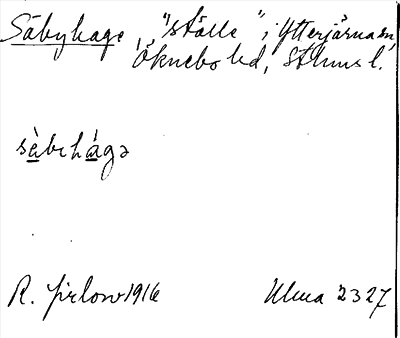 Säbyhage, "ställe"; Ytterjärna sn,
Öknebo hd, Sthms l.
sàbιhágə
R. Jirlow 1916
Ulma 2327